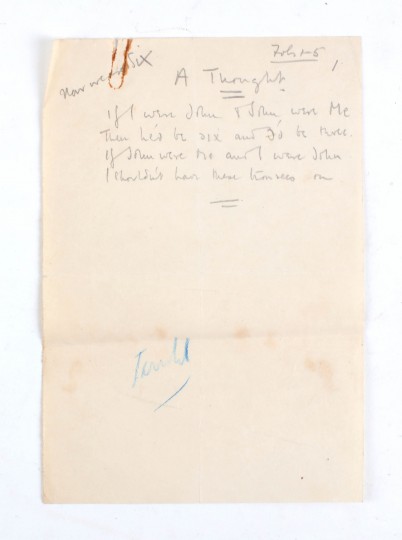 Fols 1-5
1
now we are Six
A Thought
If I were John & John were Me
Then he'd be six and I'd be three.
If John were Me and I were John.
I shouldn't have these trousers on